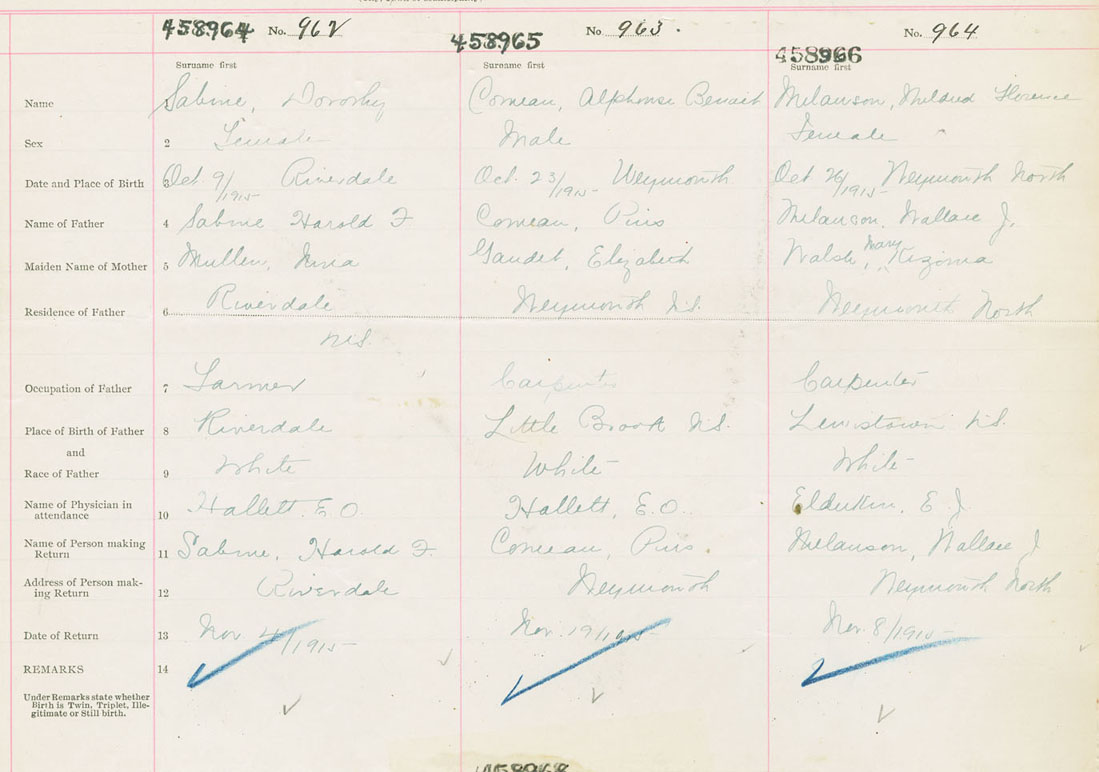 458964 No. 962 458965 No 963. 458966 No. 964
Surname first Surname first Surname first
Name Sabine, Dorothy Comeau, Alphonse Benoit Melanson, Mildred Florence
Sex 2 Female Male Female
Date and Place of Birth 3 Oct. 9/1915 Riverdale Oct. 23/1915 Weymouth Oct 26/1915 Weymouth North
Name of Father 4 Sabine Harold F. Comeau, Pius Melanson, Wallace J.
Maiden Name of Mother 5 Mullen, Nina Gaudet, Elizabeth Walsh, Mary
Residence of Father 6 Riverdale Weymouth N.S. Weymouth North
N.S.
Occupation of Father 7 Farmer Carpenter Carpenter
Place of Birth of Father 8 Riverdale Little Brook N.S. Lewistown N.S.
and
Race of Father 9 White White White
Name of Physician in
attendance 10 Hallett. E.O. Hallett, E.O. Elderkin, E. J
Name of Person making
Return 11 Sabine, Harold F. Comeau, Pius. Melanson, Wallace J
Address of Person mak-
ing Return 12 Riverdale Weymouth Weymouth North
Date of Return 13 Nov 4/1915 Nov. 19/1915 Nov. 8/1915
REMARKS 14
Under Remarks state whether
Birth is Twin, Triplet, Ille-
gitimate or Still birth.
458968